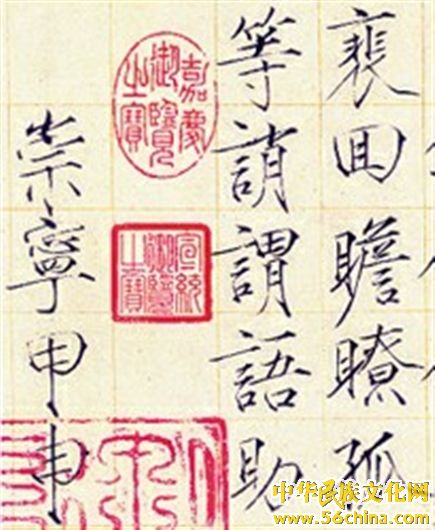 裵囬瞻瞭孤
等誚謂語助
崇寧甲申
嘉慶御覽之寶
宣統御覽之寶
中华民族文化网
www.56china.com